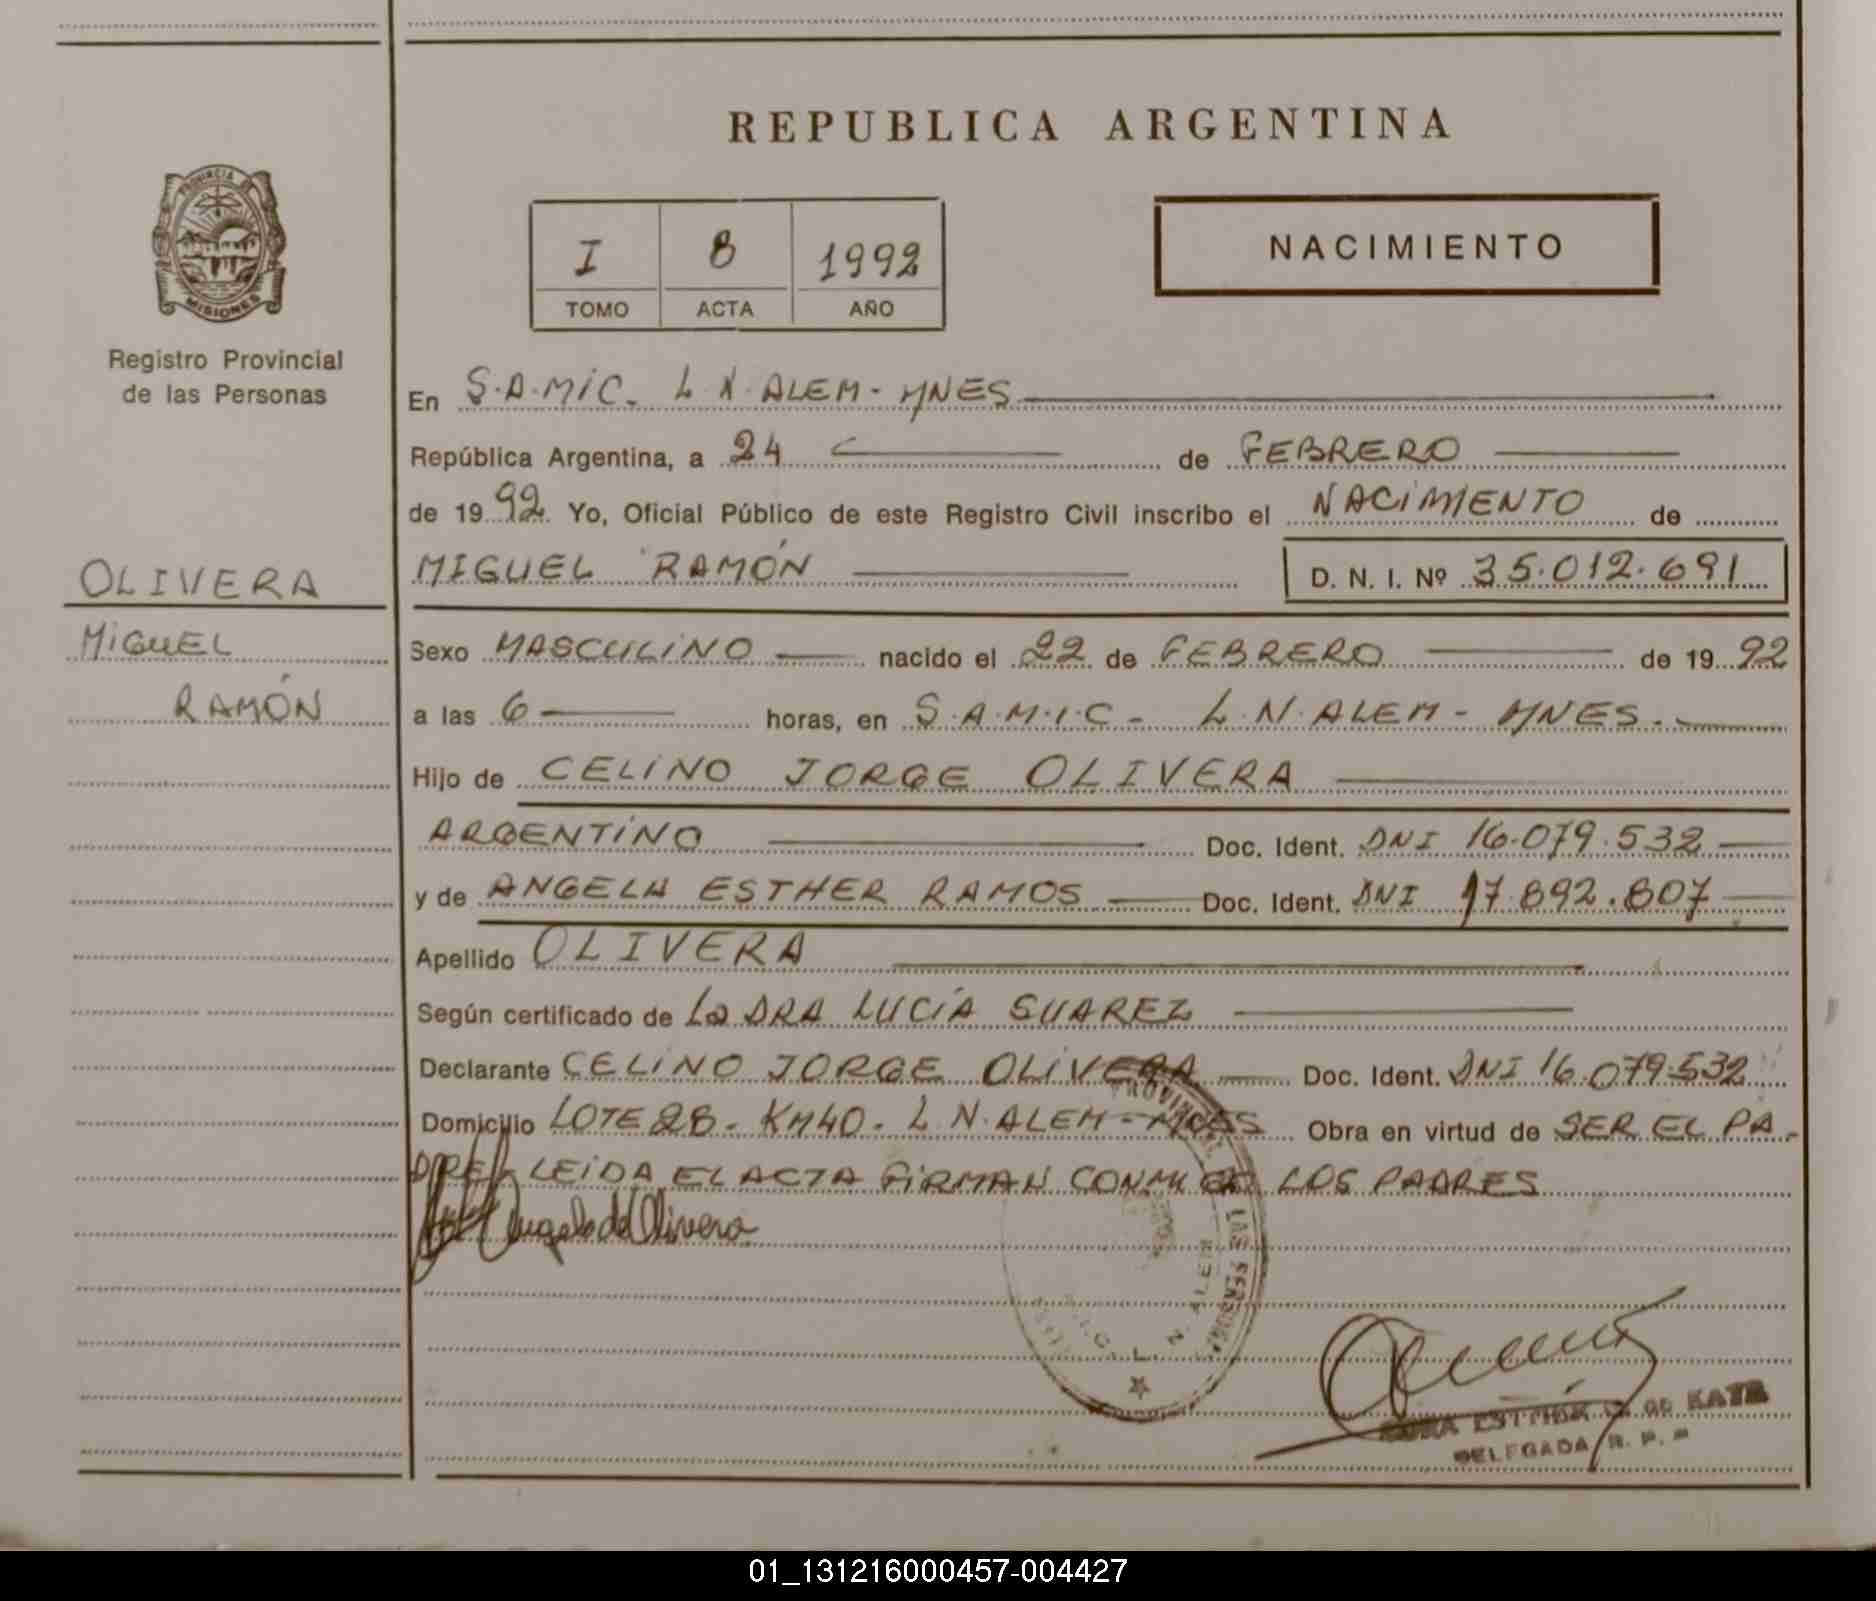 REPUBLICA ARGENTINA
PROVINCIA DE
MISIONES
Registro Provincial
de las Personas
I 8 1992
TOMO ACTA AÑO
NACIMIENTO
En S.A.MIC. L.N.ALEM-MNES
República Argentina, a 24 de FEBRERO
de 1992. Yo, Oficial Público de este Registro Civil inscribo el NACIMIENTO de
MIGUEL RAMÓN D. N. I. Nº 35.012.691
OLIVERA
MIGUEL
RAMÓN
Sexo MASCULINO nacido el 22 de FEBRERO de 1992
a las 6 horas, en S.A.M.I.C- L.N.ALEM- MNES.
Hijo de CELINO JORGE OLIVERA
ARGENTINO Doc. Ident. DNI 16.079.532
y de ANGELA ESTHER RAMOS Doc. Ident. DNI 17.892.807
Apellido OLIVERA
Según certificado de La DRA LUCÍA SUAREZ
Declarante CELINO JORGE OLIVERA Doc. Ident. DNI 16.079.532
Domicilio LOTE 28- KM40- L.N.ALEM-MNES Obra en virtud de SER EL PA-
DRE. LEIDA EL ACTA FIRMAN CONMIGO LOS PADRES
Angela de Olivera
LAS PERSONAS
L. N. ALEM
ESTHER de KATZ
DELEGADA R. P. P
01_131216000457-004427